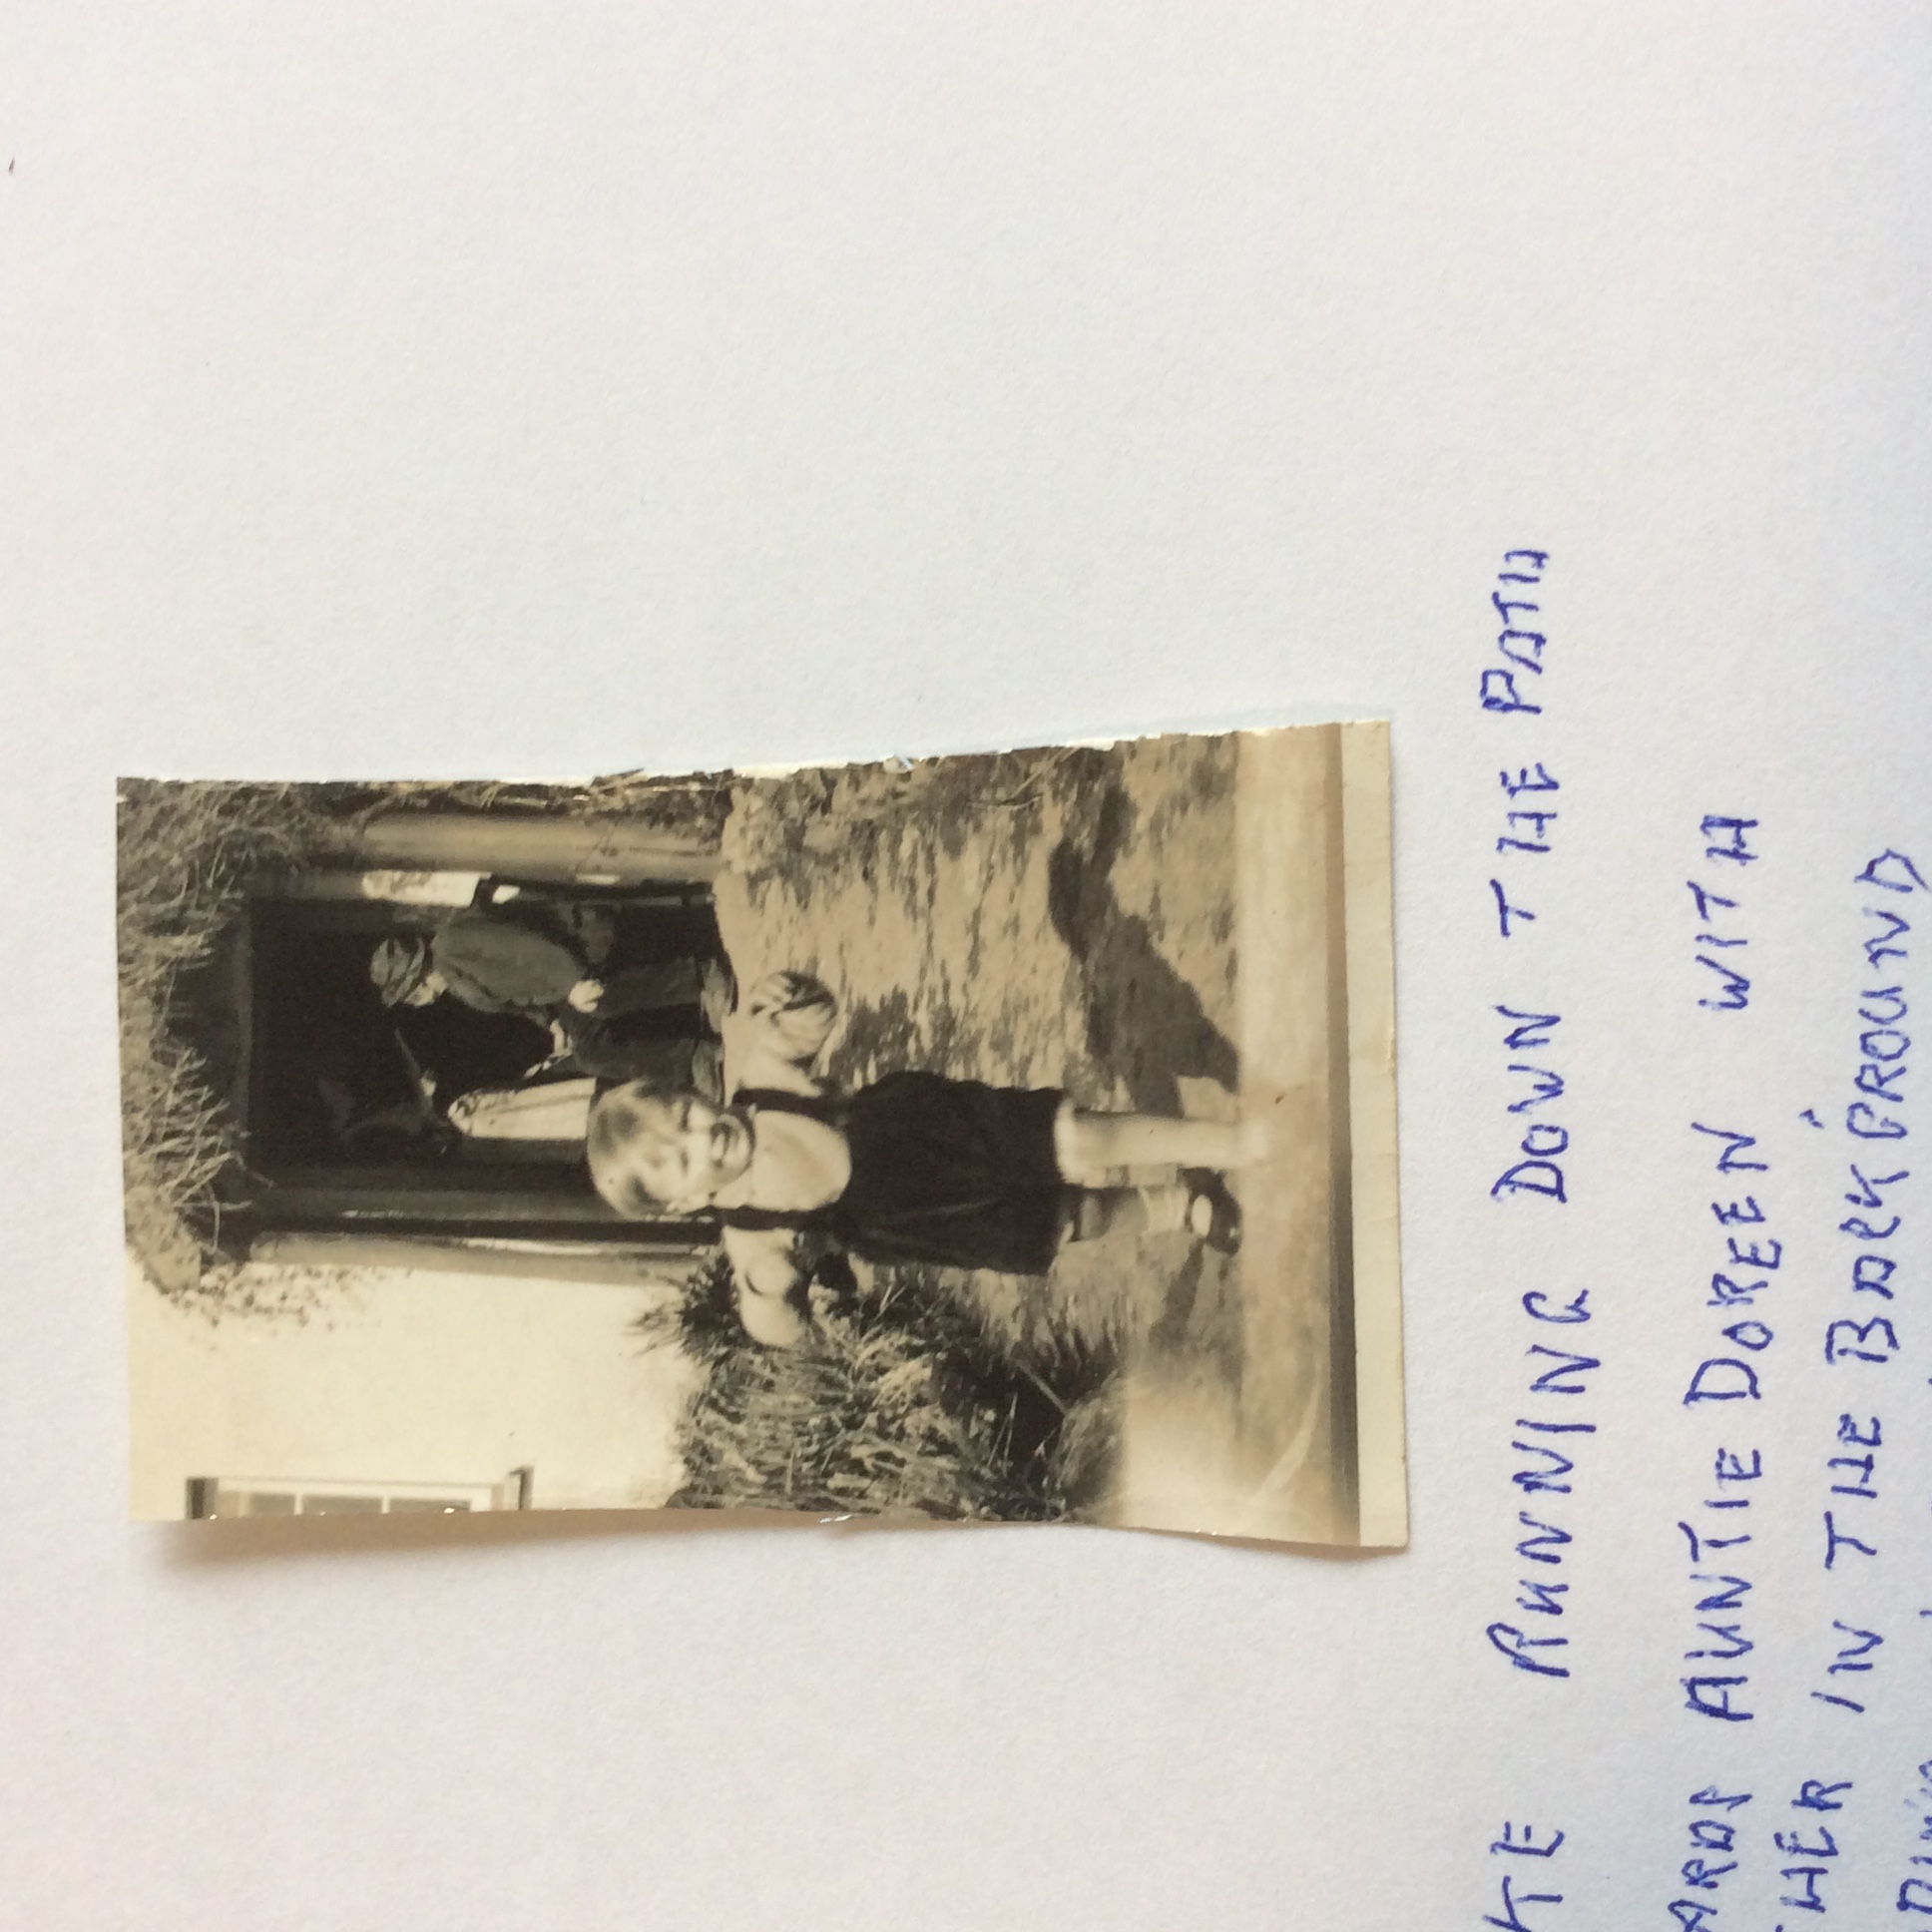 KE RUNNING DOWN THE PATH
ARDS AUNTIE DOREEN WITH
THER IN THE BACKGROUND